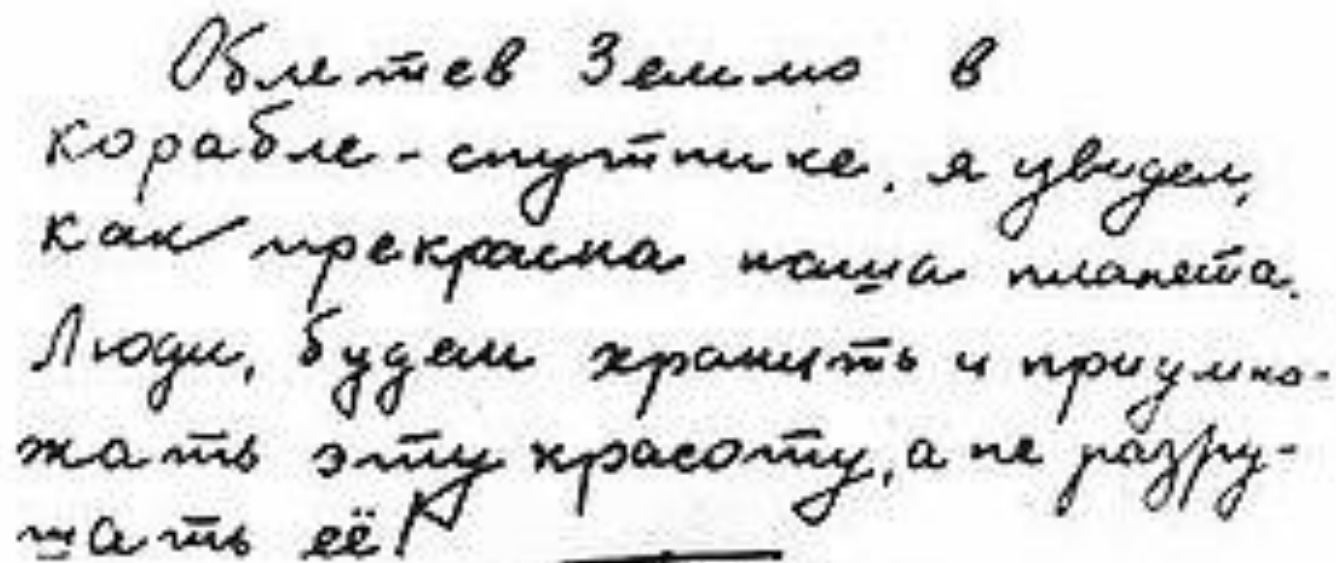 Облетев Землю в
корабле-спутнике, я увидел,
как прекрасна наша планета.
Люди, будем хранить и приумно-
жать эту красоту, а не разру-
шать её!